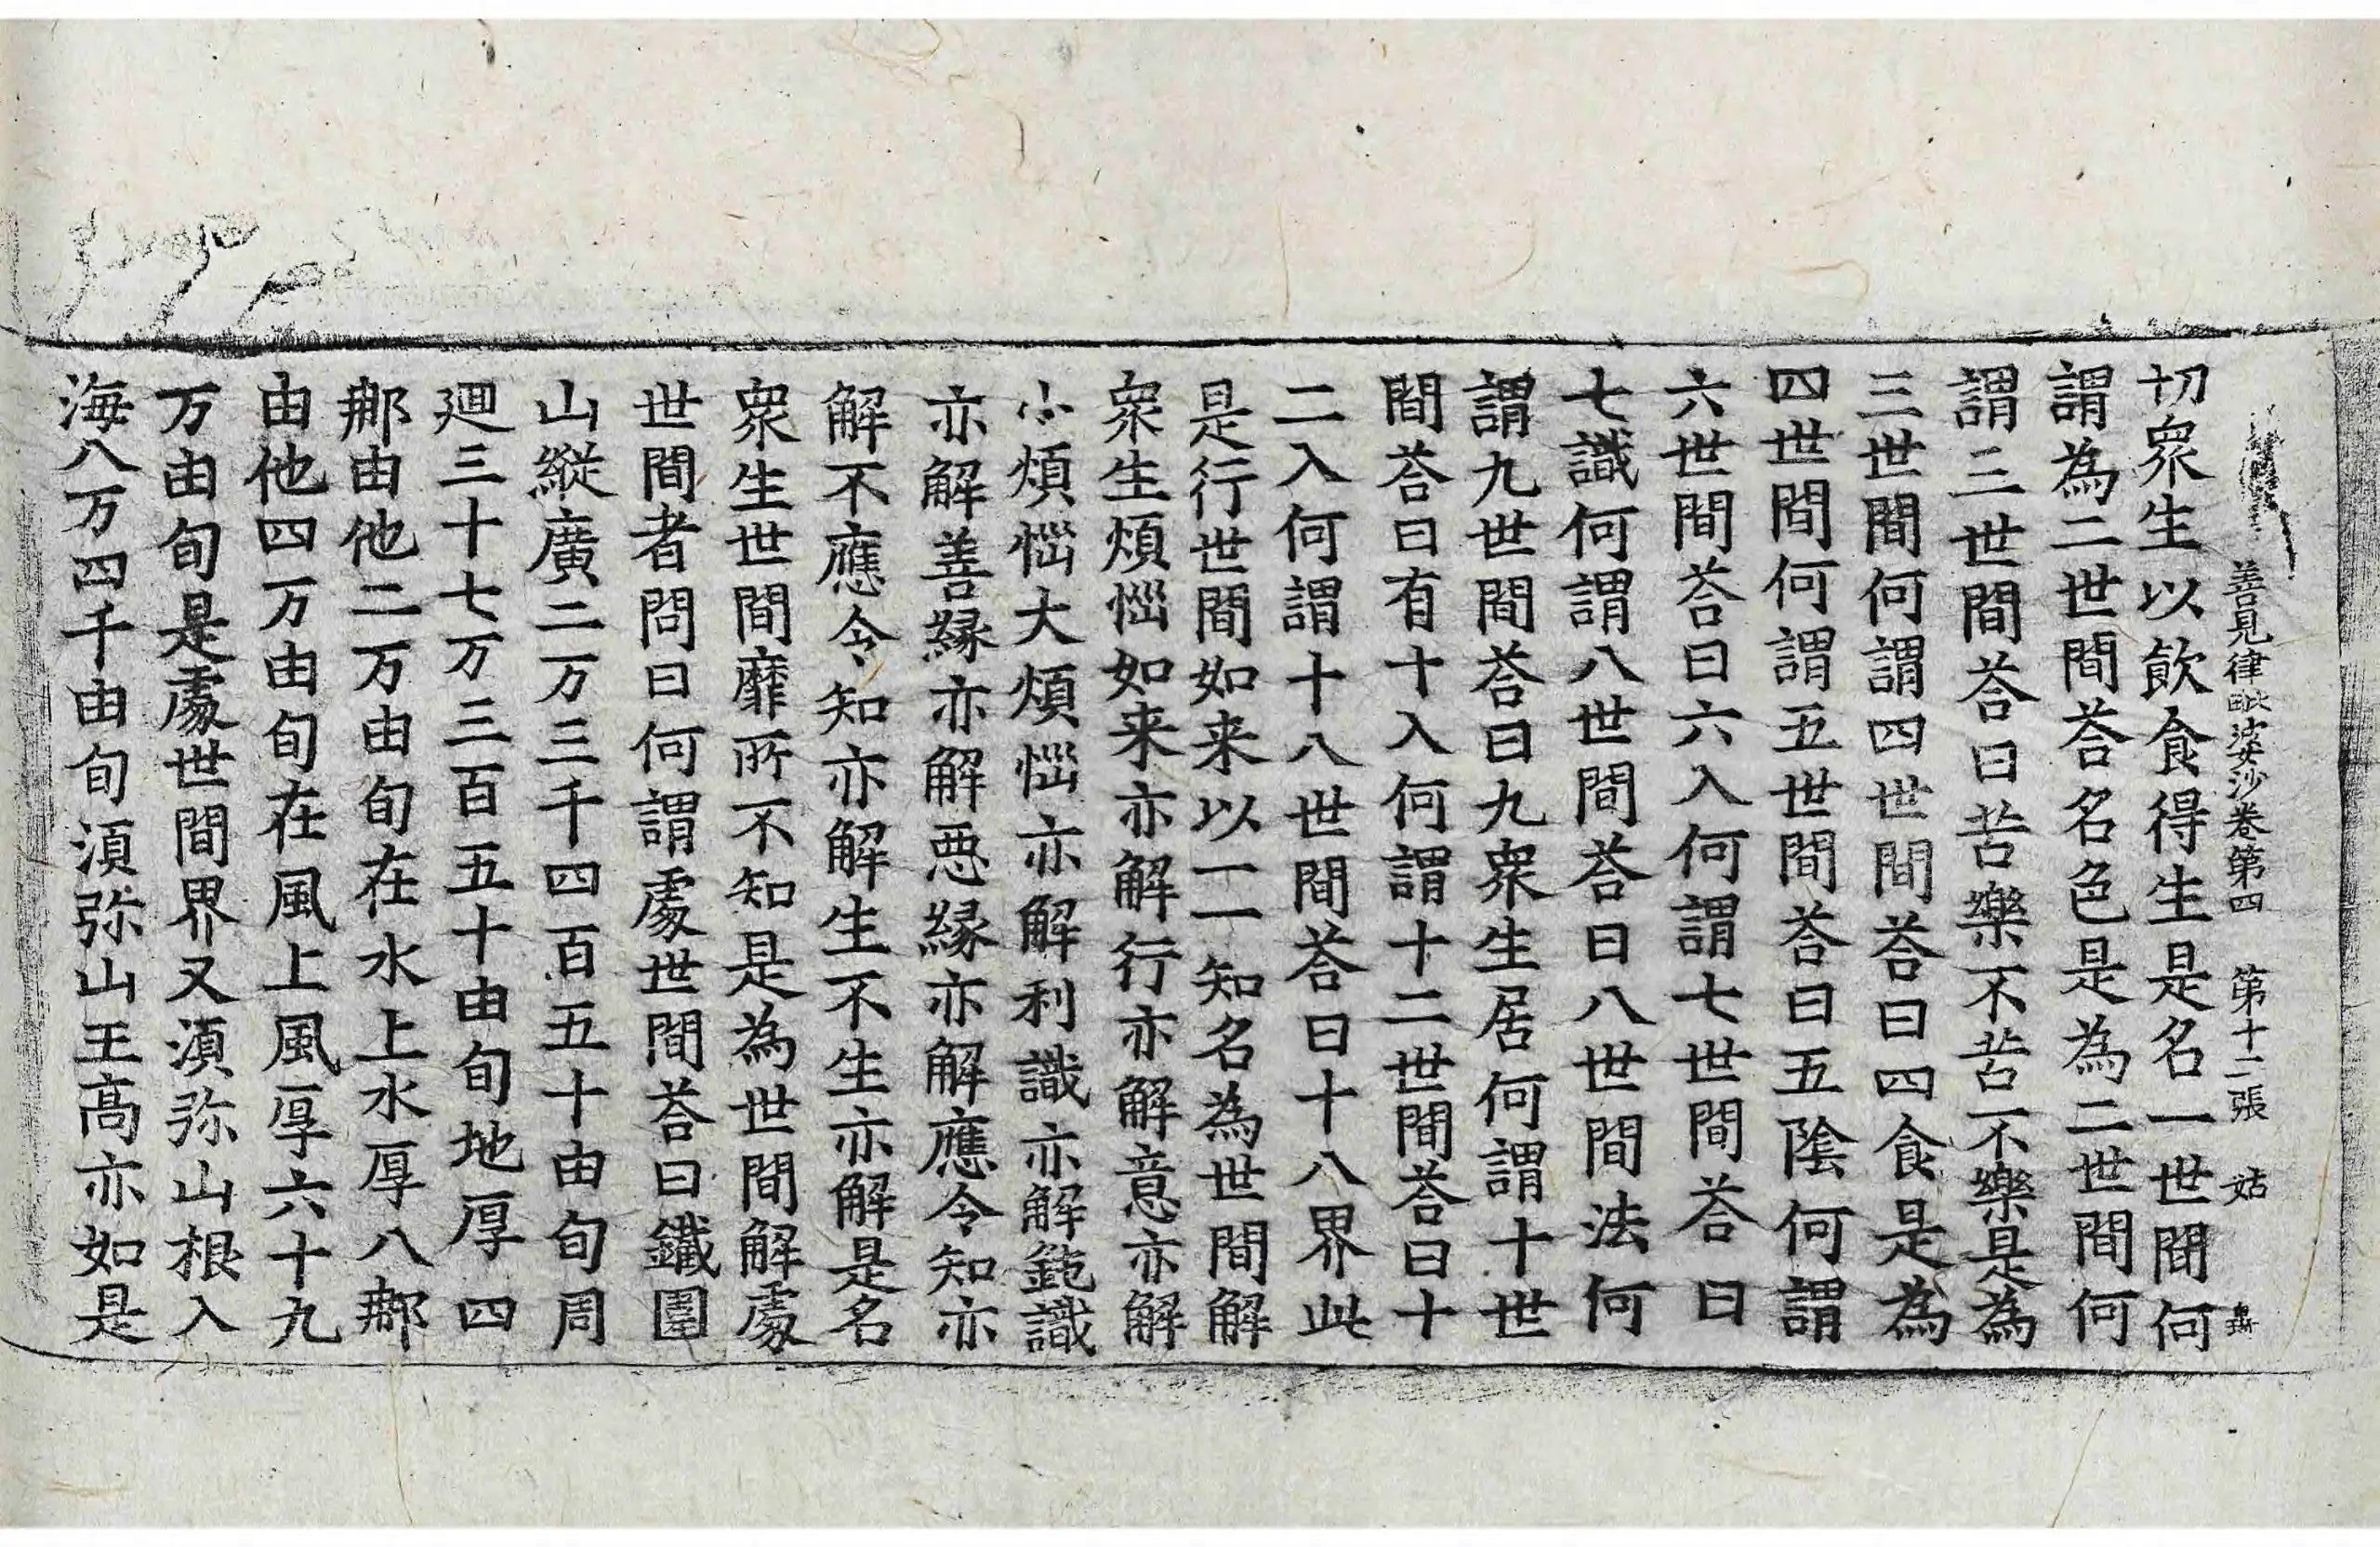 善見律毗婆沙卷第四　第十二張　姑
切衆生以飲食得生是名一世間何
謂為二世間荅名色是為二世間何
謂三世間荅曰苦樂不苦不樂是為
三世間何謂四世間荅曰四食是為
四世間何謂五世間荅曰五陰何謂
六世間荅曰六入何謂七世間荅曰
七識何謂八世間荅曰八世間法何
謂九世間荅曰九衆生居何謂十世
間荅曰有十入何謂十二世間荅曰十
二入何謂十八世間荅曰十八界此
是行世間如来以一一知名為世間解
衆生煩惱如来亦解行亦解意亦解
小煩惱大煩惱亦解利識亦解鈍識
亦解善緣亦解惡緣亦解應令知亦
解不應令知亦解生不生亦解是名
衆生世間靡所不知是為世間解處
世間者問曰何謂處世間荅曰鐵圍
山縱廣二万三千四百五十由旬周
迴三十七万三百五十由旬地厚四
那由他二万由旬在水上水厚八那
由他四万由旬在風上風厚六十九
万由旬是處世間界又湏弥山根入
海八万四千由旬湏弥山王高亦如是